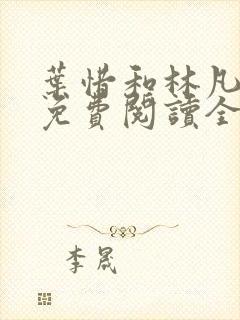 葉惜和林凡
免費閱讀全
李晟